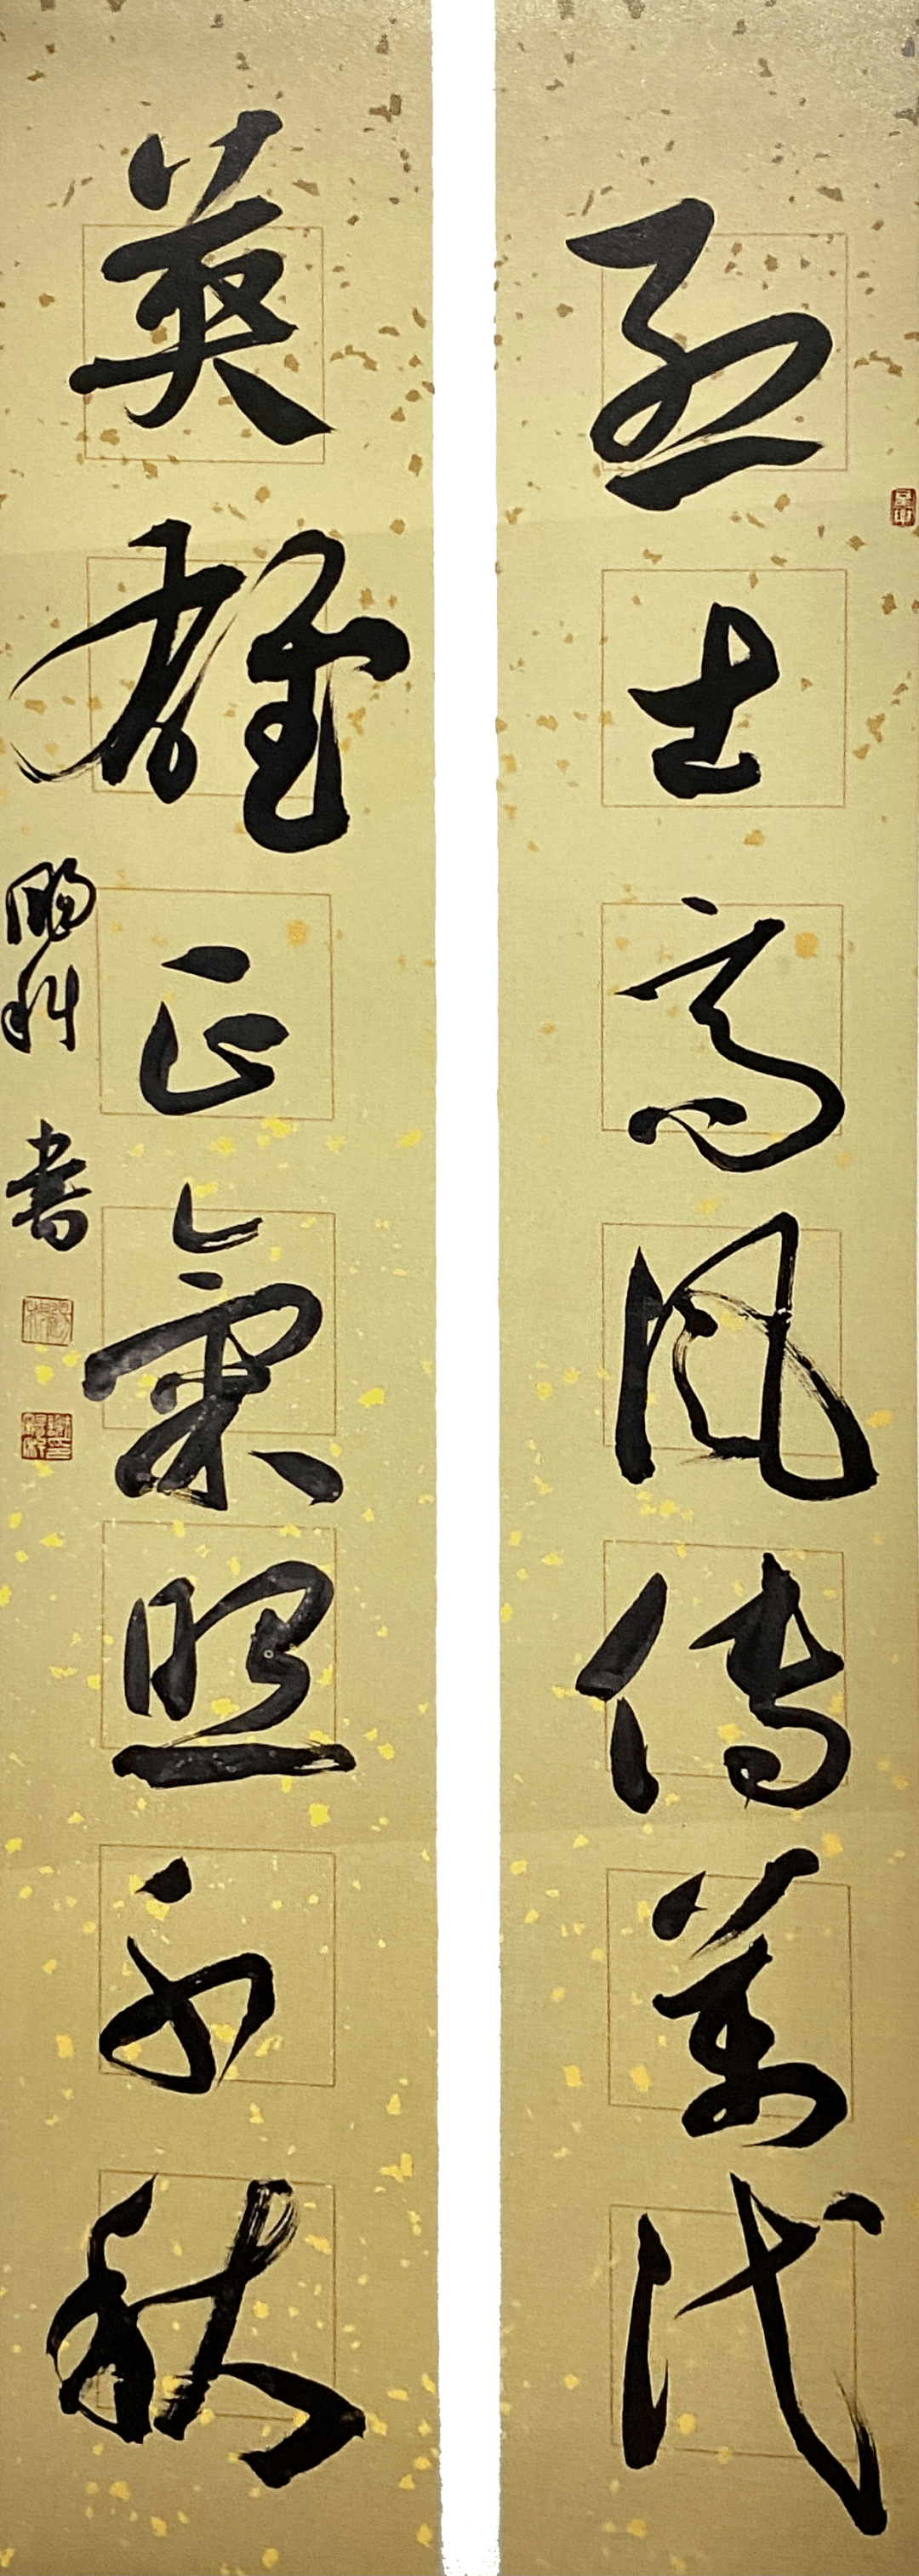 烈士高風傳萬代
英雄正氣照秋
書